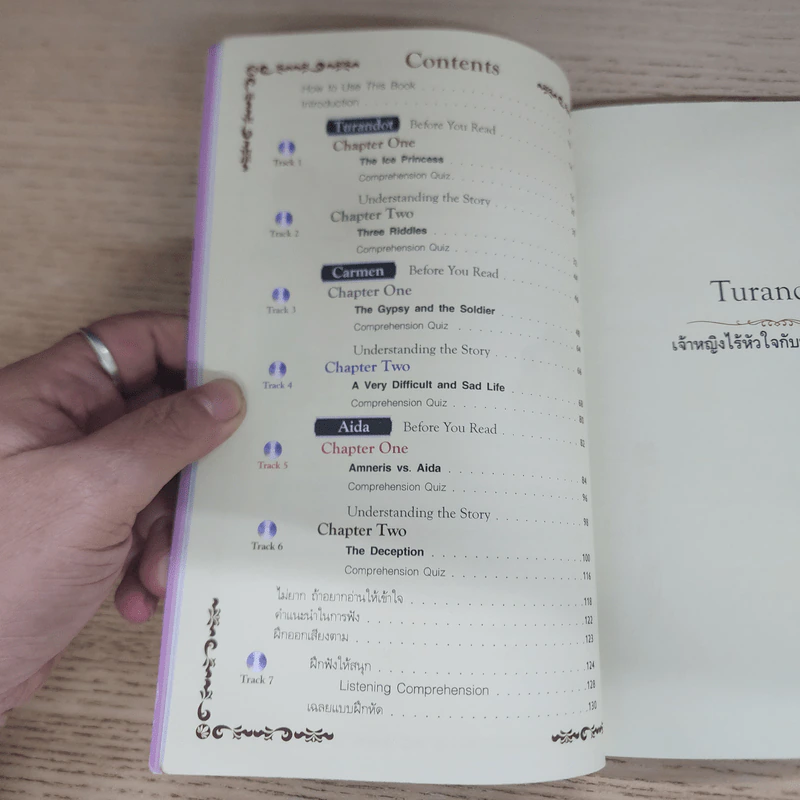 Contents
How to Use This Book
Introduction
Turandot Before You Read
Chapter One
Track 1
The Ice Princess
Comprehension Quiz
Understanding the Story
Chapter Two
Track 2
Three Riddles
Comprehension Quiz
Carmen Before You Read
Chapter One
Track 3
The Gypsy and the Soldier
Comprehension Quiz
Understanding the Story
Chapter Two
Track 4
A Very Difficult and Sad Life
Comprehension Quiz
Aida Before You Read 82
Chapter One
Track 5
Amneris vs. Aida 84
Comprehension Quiz 96
Understanding the Story 98
Chapter Two
Track 6
The Deception 100
Comprehension Quiz 116
ไม่ยาก ถ้าอยากอ่านให้เข้าใจ 118
คำแนะนำในการฟัง 122
ฝึกออกเสียงตาม 123
Track 7
ฝึกฟังให้สนุก 124
Listening Comprehension 128
เฉลยแบบฝึกหัด 130
เจ้าหญิงไร้หัวใจกับ